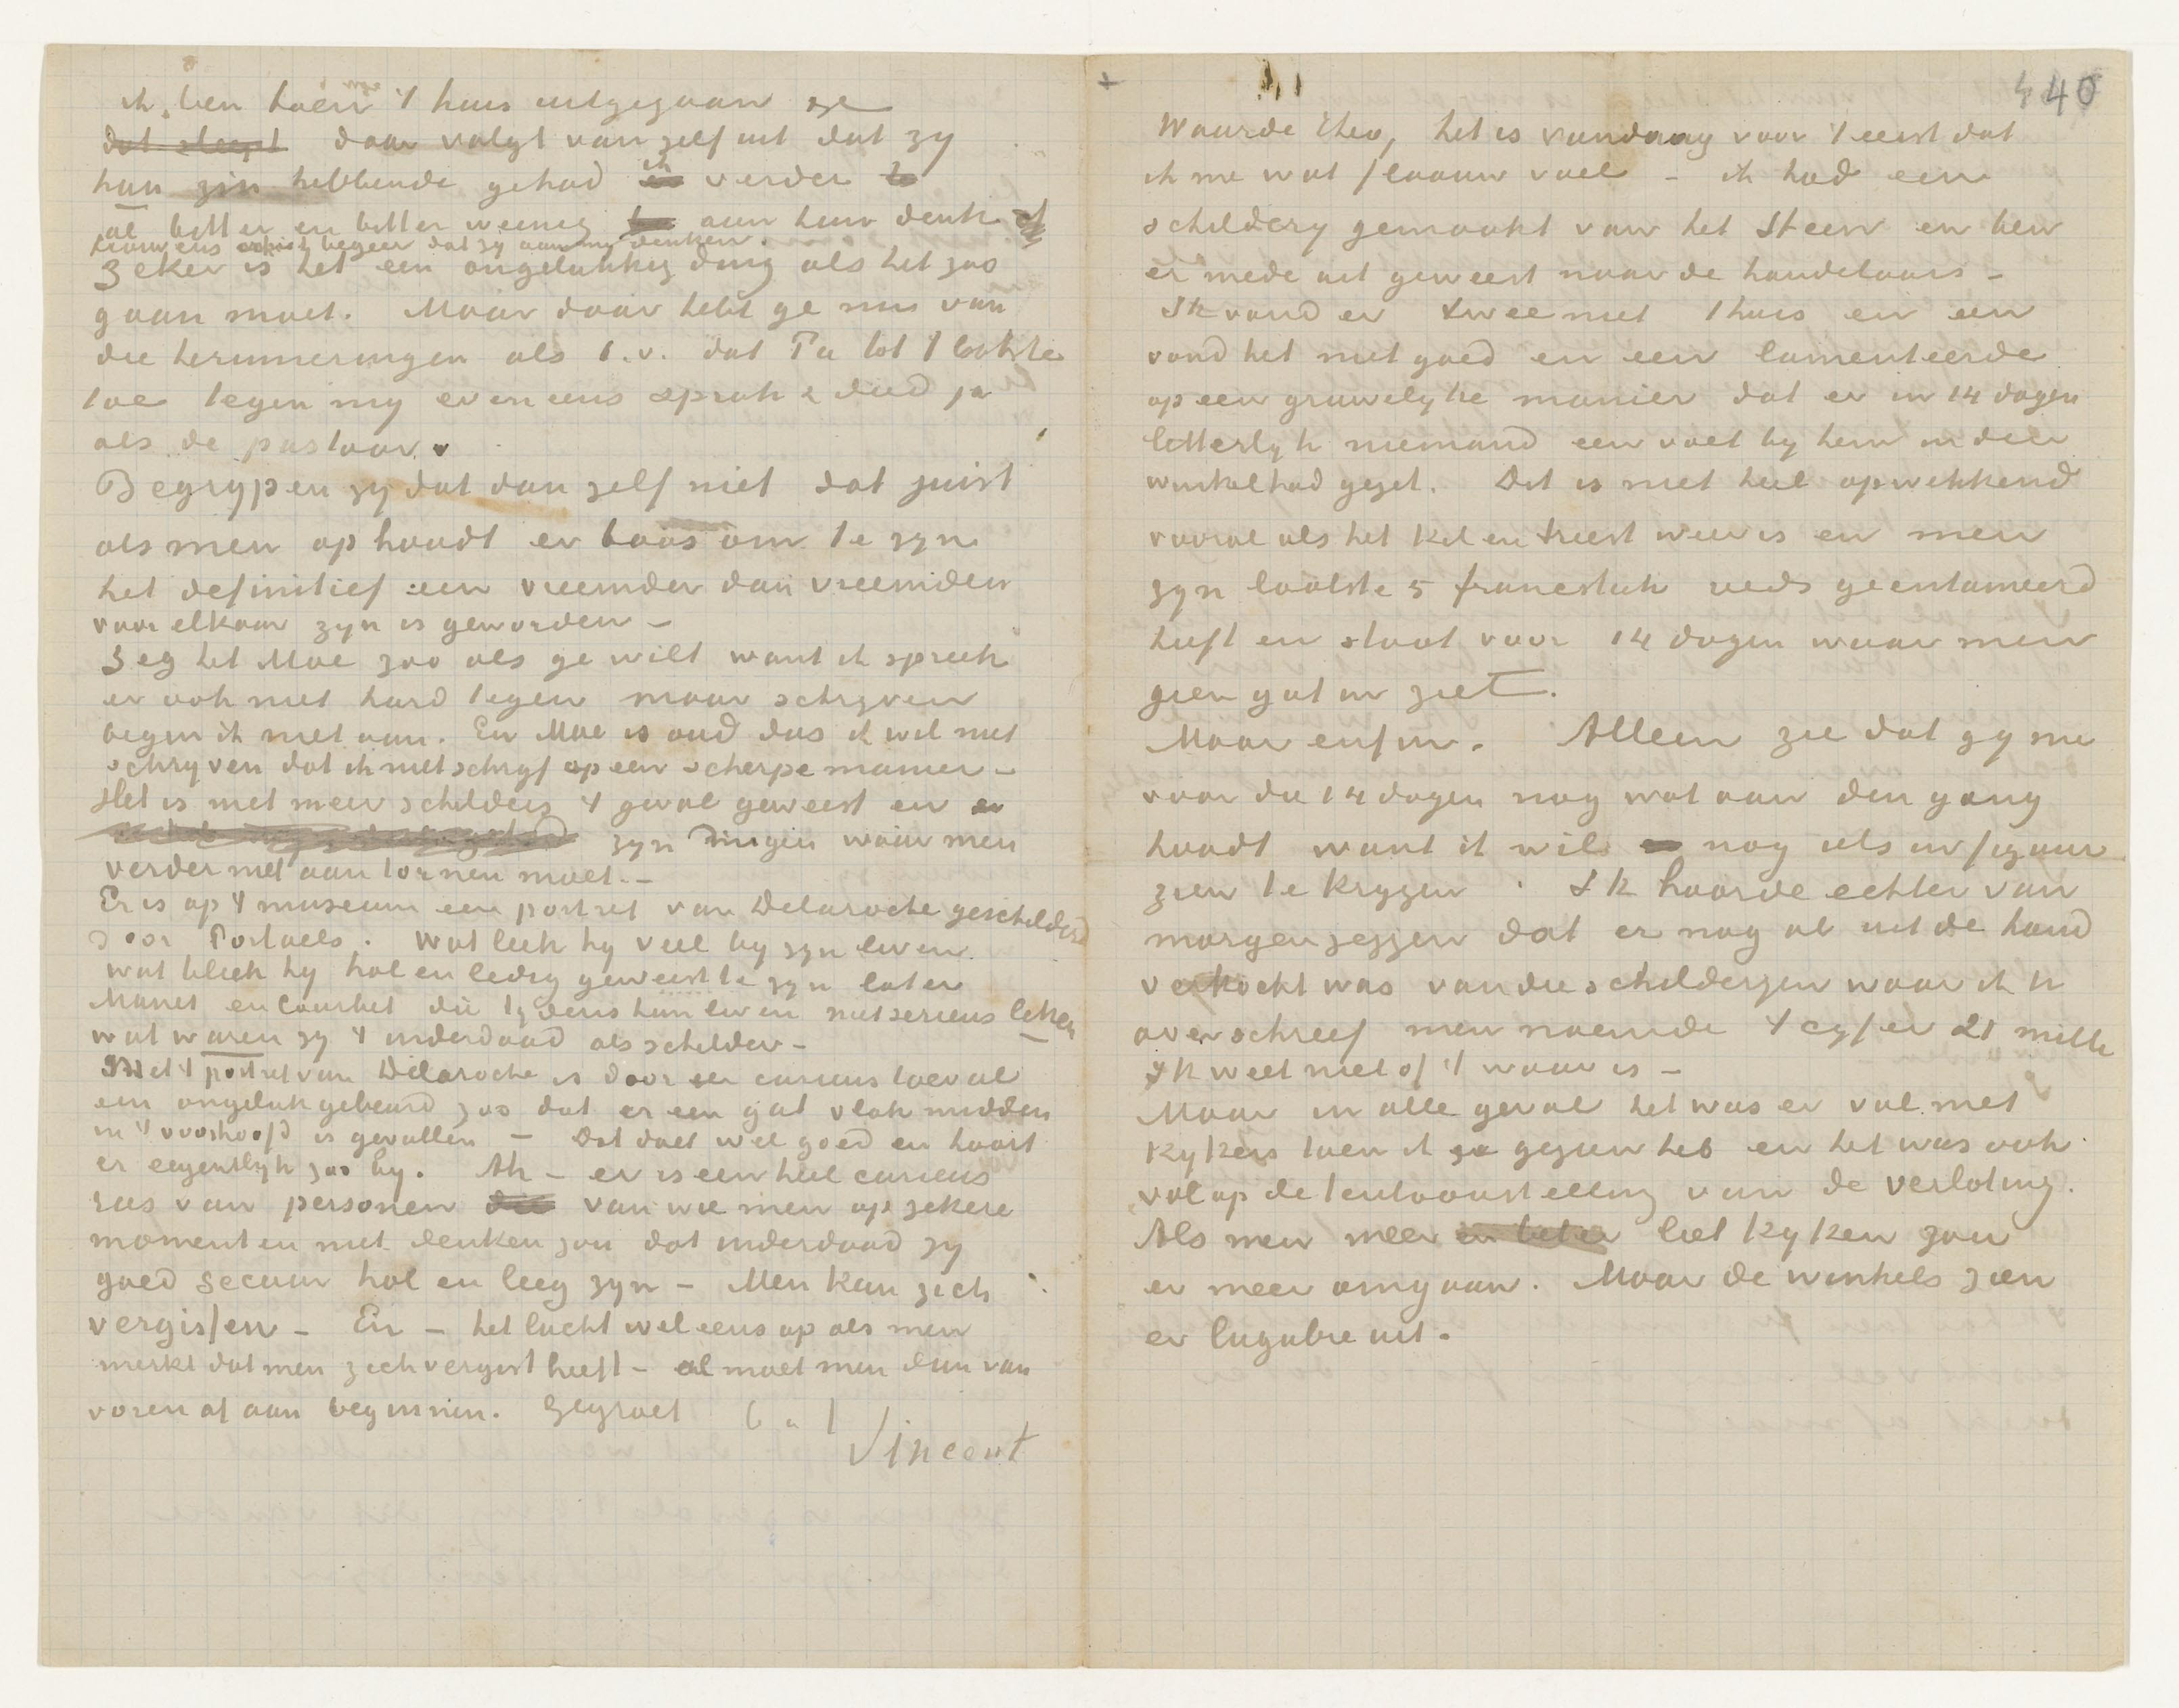 440
Waarde Theo, het is vandaag voor 't eerst dat
ik me wat flaauw voel – ik had een
schildery gemaakt van het Steen en ben
er mede uit geweest naar de handelaars –
Ik vond er twee niet t huis en een
vond het niet goed en een lamenteerde
op een gruwelyke manier dat er in 14 dagen
letterlyk niemand een voet by hem in den
winkel had gezet. Dit is niet heel opwekkend
vooral als het kil en triest weer is en men
zyn laatste 5 francstuk reeds geentameerd
heeft en staat voor 14 dagen waar men
geen gat in ziet.
Maar enfin. Alleen zie dat gy me
voor die 14 dagen nog wat aan den gang
houdt want ik wil nog iets in figuur
zien te krygen. Ik hoorde echter van
morgen zeggen dat er nog al uit de hand
verkocht was van die schilderyen waar ik U
over schreef men noemde 't cyfer 21 mille
ik weet niet of 't waar is –
Maar in alle geval het was er vol met
kykers toen ik ze gezien heb en het was ook
vol op de tentoonstelling van de verloting.
Als men meer en beter liet kyken zou
er meer omgaan. Maar de winkels zien
er lugubre uit.
ik ben toen 't huis uitgegaan ze
dat sleept daar volgt van zelf uit dat zy
hun zin hebbende gehad ik verder
al bitter en bitter weinig aan hun denk of
trouwens begeer dat zy aan my denken.
Zeker is het een ongelukkig ding als het zoo
gaan moet. Maar daar hebt ge nu van
die herinneringen als b.v. dat Pa tot 't laatste
toe tegen my eveneens sprak & deed ja
als de pastoor.
Begrypen zy dat dan zelf niet dat juist
als men ophoudt er boos om te zyn
het definitief een vreemder dan vreemden
voor elkaar zyn is geworden –
Zeg het Moe zoo als ge wilt want ik spreek
er ook niet hard tegen maar schryven
begin ik niet aan. En Moe is oud dus ik wil niet
schryven dat ik niet schryf op een scherpe manier –
Het is met meer schilders 't geval geweest en er
zyn dingen waar men
verder niet aan tornen moet. –
Er is op 't museum een portret van Delaroche geschilderd
door Portaels. Wat leek hy veel by zyn leven
wat bleek hy hol en ledig geweest te zyn later
Manet en Courbet die tydens hun leven niet serieus leken
wat waren zy 't inderdaad als schilder –
Met 't portret van Delaroche is door een curieus toeval
een ongeluk gebeurd zoo dat er een gat vlak midden
in 't voorhoofd is gevallen – Dat doet wel goed en hoort
er eigentlyk zoo by. Ah – er is een heel curieus
ras van personen die van wie men op zekere
momenten niet denken zou dat inderdaad zy
goed secuur hol en leeg zyn – Men kan zich
vergissen – En – het lucht wel eens op als men
merkt dat men zich vergist heeft – al moet men dan van
voren af aan beginnen. Gegroet
Vincent